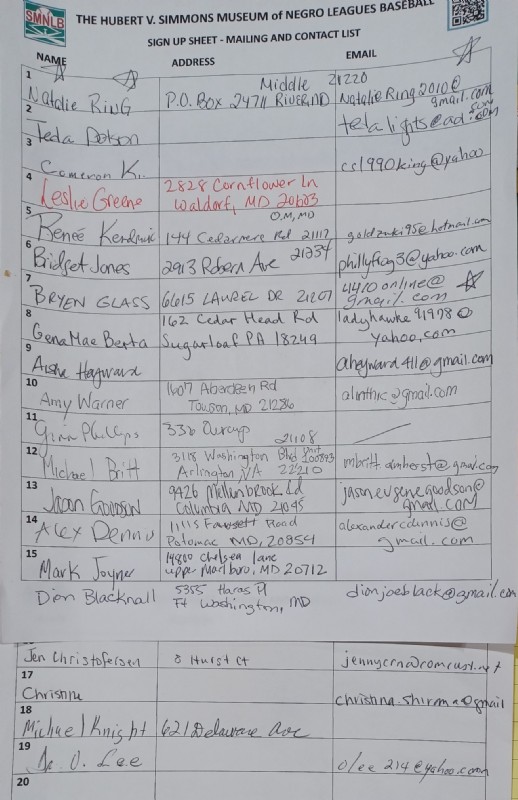 SMNLB
THE HUBERT V. SIMMONS MUSEUM of NEGRO LEAGUES BASEBALL
SIGN UP SHEET - MAILING AND CONTACT LIST
NAME ADDRESS EMAIL
1 Natalie Ring P.O. Box 24711 Middle River MD 21220 NatalieRing2010@gmail.com
2 Teda Dotson
3 Cameron K. ccl990king@yahoo
4 Leslie Greene 2828 Cornflower Ln
Waldorf, MD 20603
5 Reneé 144 Cedarmere Rd 21117 O.M, MD
6 Bridget Jones 2913 Robern Ave 21234 phillyfrog3@yahoo.com
7 BRYEN GLASS 6615 LAUREL DR 21207 4410online@gmail.com
8 Gena Mae 162 Cedar Head Rd ladyhawke91978@
Sugarloaf PA 18249 yahoo.com
9 Aisha Hayward aheyward411@gmail.com
10 Amy Warner 1607 Aberdeen Rd
Towson, MD 21286 @gmail.com
11 Phillips 336 21108
12 Michael Britt 3118 Washington Blvd Unit 100893
Arlington, VA 22210 mbrittamherst@gmail.com
13 Jason Goodson 9426 Mellenbrook Rd jasoneugenegoodson@
Columbia MD 21045 gmail.com
14 ALEX Dennis 11115 Fawsett Road alexandercdunnis@
Potomac MD, 20854 gmail.com
15 Mark Joyner 14800 Chelsea lane
upper Marlboro, MD 20712
Dion Blacknall 5355 Haras Pl dionjoeblack@gmail.com
Ft Washington, MD
Jen Christofersen 8 Hurst Ct jennycrna@comcast.net
17 @gmail
18 Michael Knight 621 Delaware Ave
19 Lee olee214@yahoo.com
20